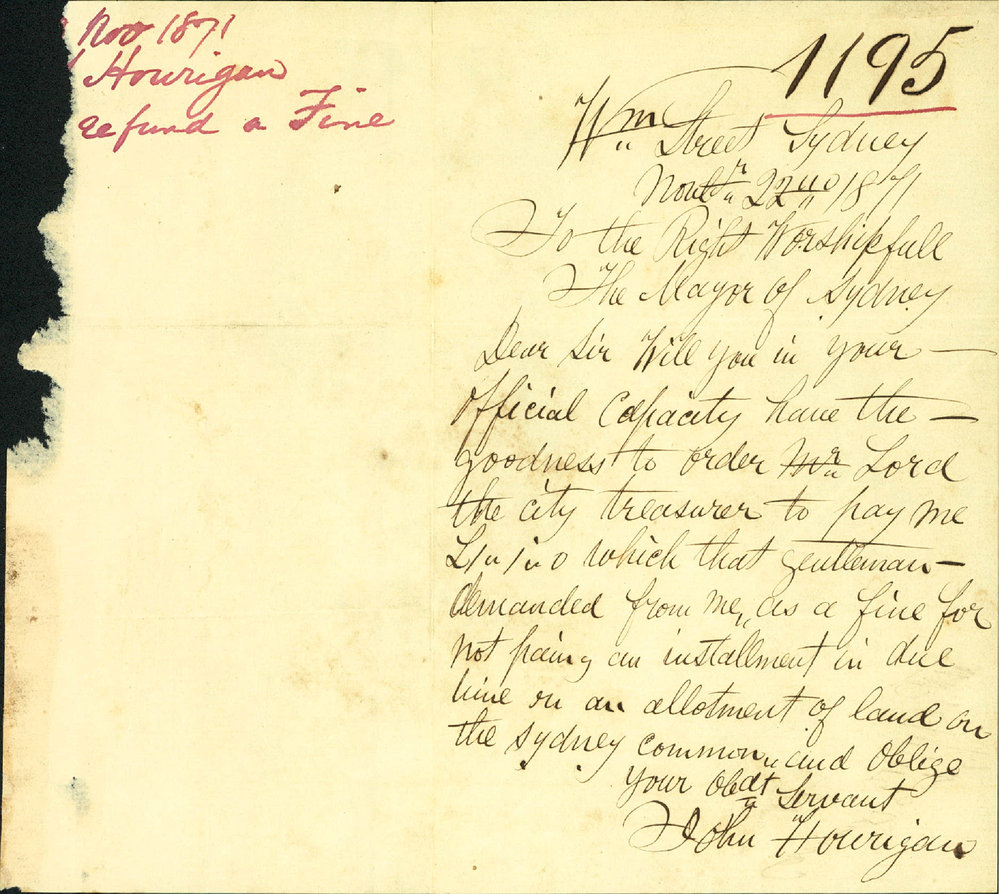 Nov 1871
Hourigan
refund a Fine
1195
Wm Street Sydney
Novbr 22nd 1871
To the Right Worshipfull
The Mayor of Sydney
Dear Sir Will you in your —
Official Capacity have the —
goodness to order Mr Lord
the city treasurer to pay me
£1 " 1 " 0 which that gentleman —
demanded from me, as a fine for
not paing an installment in due
time on an allotment of land on
the Sydney common " and Oblige
Your Obdt Servant
John Hourigan